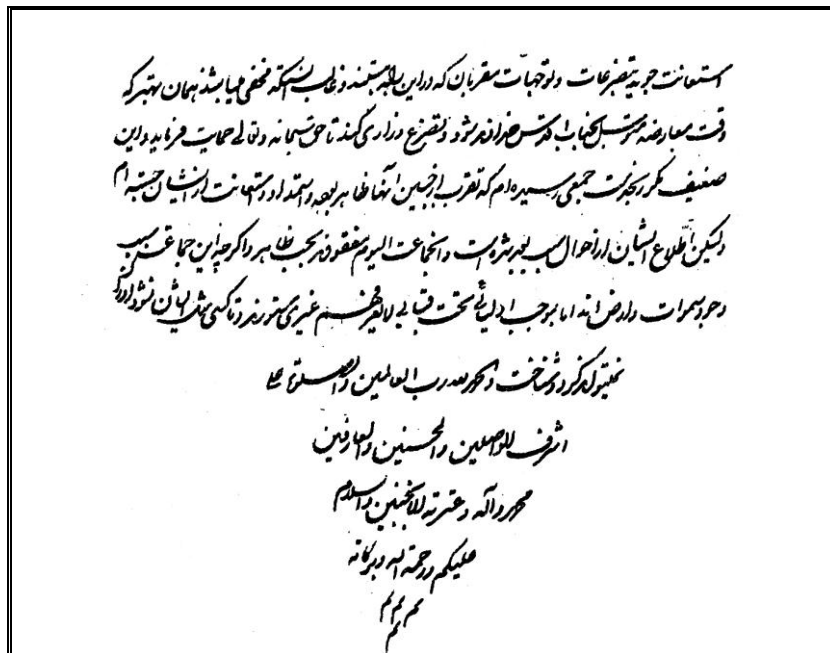 استعانت جوید بتضرعات و توجهات مقربان که در این راه هستند و غالب آنست که مخفی میباشند همان بهتر که
وقت معارضه متوسل بجناب اقدس خداوند شود و تضرع و زاری کند تا حق سبحانه و تعالی حمایت فرماید و این
ضعیف مکرر بخدمت جمعی رسیده ام که تقرب از جبین آنها ظاهر بوده و استمداد و استعانت از ایشان جسته ام
ولیکن اطلاع ایشان از احوال سبب بشره است و آنجماعت الیوم مفقودند بحسب ظاهر و اگر چه این جماعت سبب
وجود سموات و ارض اند اما بموجب اولیائی تحت قبابی لایعرفهم غیری مستورند و تا کسی مثل ایشان نشود ادراک
نمیتواند کرد و شناخت والحمد لله رب العالمین والصلوة علی
اشرف الواصلین والمحسنین والعارفین
محمد وآله وعترته الانجبین والسلام
علیکم ورحمة الله وبرکاته
م م م
م